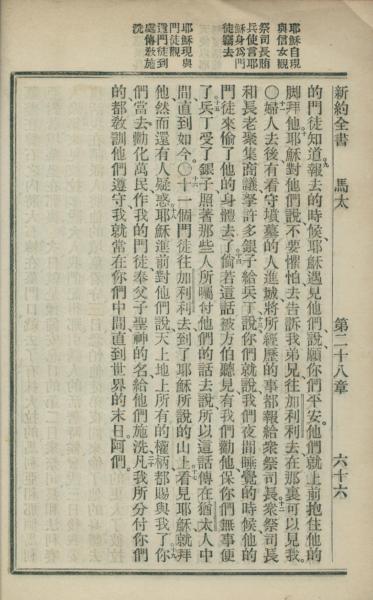 新約全書 馬太 第二十八章 六十六
耶穌自現
與信女觀
祭司長賄
兵使言耶
穌身為門
徒竊去
耶穌現與
門徒觀
遣門徒到
處傳教施
洗
的門徒知道報去的時候耶穌遇見他們說願你們平安他們就上前抱住他的
脚拜他耶穌對他們說不要懼怕去告訴我弟兄往加利利去在那裏可以見我
○婦人去後有看守墳墓的人進城將所經歷的事都報給衆祭司長衆祭司長
和長老衆集商議拏許多銀子給兵丁說你們就說我們夜間睡覺的時候他的
門徒來偷了他的身體去了倘若這話被方伯聽見有我們勸他保你們無事便
了兵丁受了銀子照著那些人所囑付他們的話去說所以這話傳在猶太人中
間直到如今○十一個門徒往加利利去到了耶穌所說的山上看見耶穌就拜
他然而還有人疑惑耶穌進前對他們說天上地上所有的權柄都賜與我了你
們當去勸化萬民作我的門徒奉父子聖神的名給他們施洗凡我所分付你們
的都教訓他們遵守我就當在你們中間直到世界的末日阿們